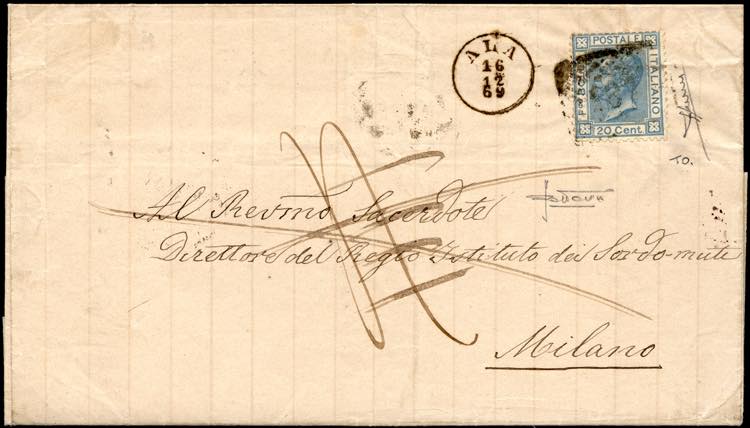 ALA
16
12
69
FRANCO BOLLO
POSTALE
ITALIANO
20 Cent.
TO.
Al Revmo Sacerdote
Direttore del Regio Istituto dei Sordo-muti
Milano